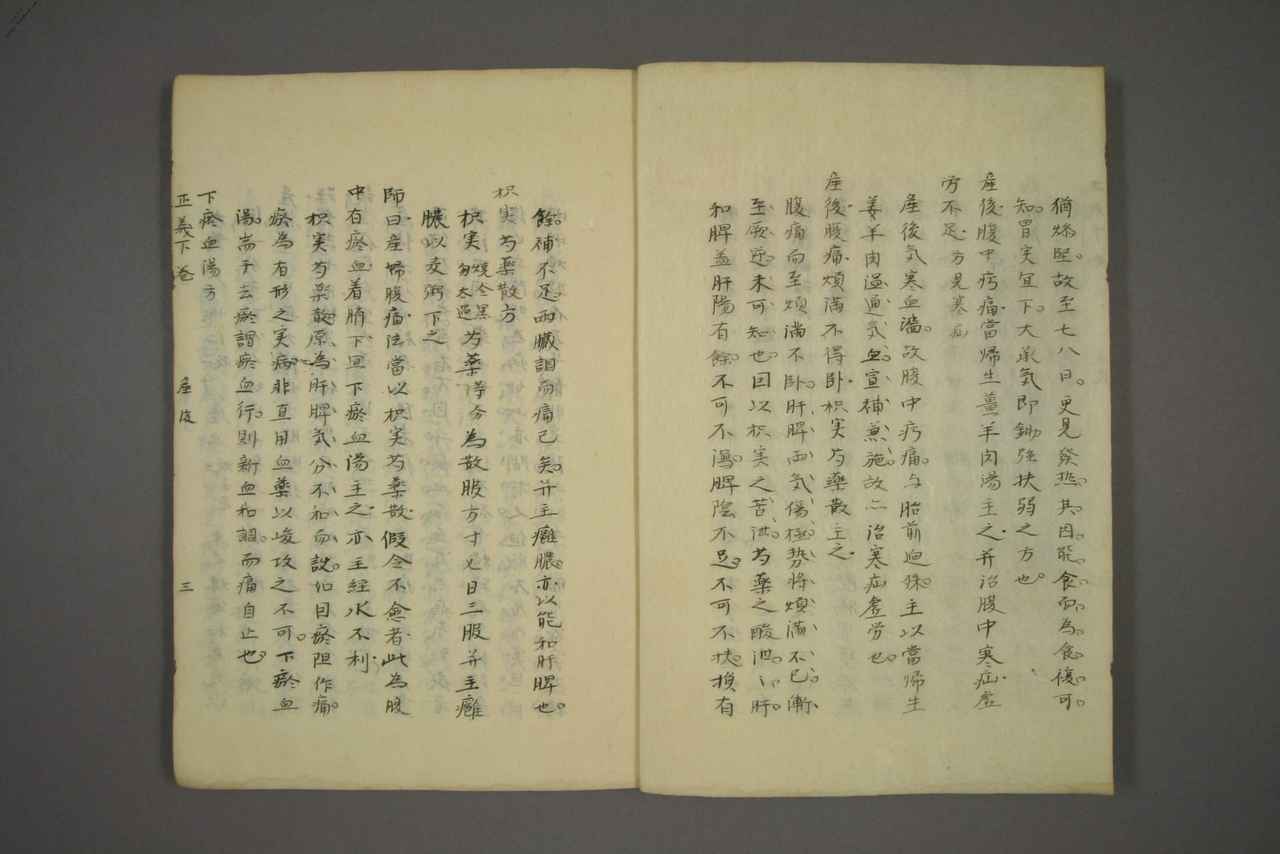 猶煉熙。故至七八日。更見發热。其因能食而為食復。可
知。胃実宜下。大承氣即鋤强扶弱之方也。
產後腹中㽲痛。當帰生薑羊肉湯主之。并治腹中寒疝虚
方不足。方見寒疝
產後気寒血濇。故腹中㽲痛。与胎前迥殊。主以當帰生
姜羊肉温通気血。宣補兼施。故亦治寒疝虚労也。
產後腹痛。煩満不得卧。枳実芍藥散主之。
腹痛而至煩満不卧。肝脾両気傷極。勢將煩満不已。漸
至厥逆。未可知也。因以枳実之苦泄。芍藥之酸泄。〻肝
和脾。盖肝陽有餘。不可不瀉。脾陰不足。不可不扶。損有
餘。補不足。両臟調而痛已矣。并主癰膿。亦以能和肝脾也。
枳実芍藥散方
枳実 燒令黑勿太過 芍藥 等分為散服方寸匕日三服并主癰
膿。以麦粥下之
師曰。產婦腹痛。法當以枳実芍藥散。假令不愈者。此為腹
中有瘀血着臍下。宜下瘀血湯主之。亦主經水不利。
枳実芍藥散。原為肝脾気分不和而設。如因瘀阻作痛。
瘀為有形之実病。非直用血藥以峻攻之不可。下瘀血
湯。耑于去瘀。謂瘀血行。則新血和調。而痛自止也。
下瘀血湯方
正義下卷 產後 三